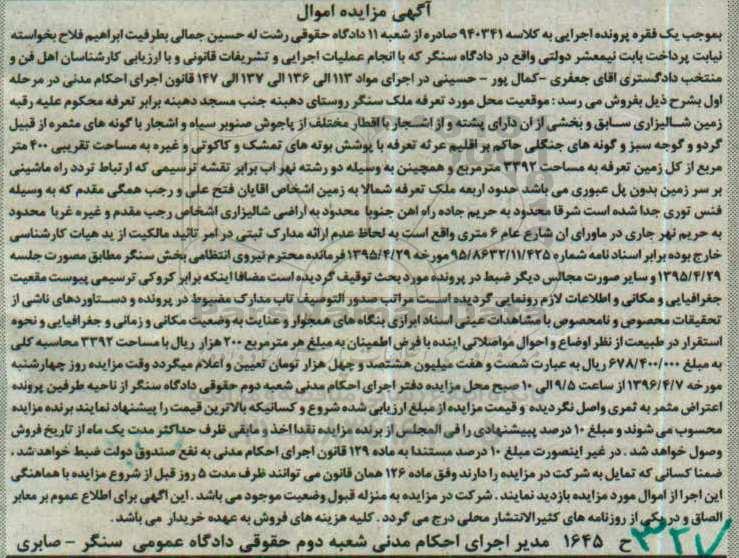 آگهی مزایده اموال
بموجب یک فقره پرونده اجرایی به کلاسه ۹۴۰۳۴۱ صادره از شعبه ۱۱ دادگاه حقوقی رشت له حسین جمالی بطرفیت ابراهیم فلاح بخواسته
نیابت پرداخت بابت نیمعشر دولتی واقع در دادگاه سنگر که با انجام عملیات اجرایی و تشریفات قانونی و با ارزیابی کارشناسان اهل فن و
منتخب دادگستری اقای جعفری -کمال پور - حسینی در اجرای مواد ۱۱۳ الی ۱۳۶ الی ۱۳۷ الی ۱۴۷ قانون اجرای احکام مدنی در مرحله
اول بشرح ذیل بفروش می رسد : موقعیت محل مورد تعرفه ملک سنگر روستای دهبنه جنب مسجد دهبنه برابر تعرفه محکوم علیه رقبه
زمین شالیزاری سابق و بخشی از ان دارای پشته و از اشجار با اقطار مختلف از پاجوش صنوبر سیاه و اشجار با گونه های مثمره از قبیل
گردو و گوجه سبز و گونه های جنگلی حاکم بر اقلیم عرثه تعرفه با پوشش بوته های تمشک و کاکوتی و غیره به مساحت تقریبی ۴۰۰ متر
مربع از کل زمین تعرفه به مساحت ۳۳۹۲ مترمربع و همچینن به وسیله دو رشته نهر اب برابر نقشه ترسیمی که ارتباط تردد راه ماشینی
بر سر زمین بدون پل عبوری می باشد حدود اربعه ملک تعرفه شمالا به زمین اشخاص اقایان فتح علی و رجب همگی مقدم که به وسیله
فنس توری جدا شده است شرقا محدود به حریم جاده راه اهن جنوبا محدود به اراضی شالیزاری اشخاص رجب مقدم و غیره غربا محدود
به حریم نهر جاری در ماورای ان شارع عام ۶ متری واقع است به لحاظ عدم ارائه مدارک ثبتی در امر تائید مالکیت از ید هیات کارشناسی
خارج بوده برابر اسناد نامه شماره ۹۵/۸۶۳۲/۱۱/۴۲۵ مورخه ۱۳۹۵/۴/۲۹ فرمانده محترم نیروی انتظامی بخش سنگر مطابق مصورت جلسه
۱۳۹۵/۴/۲۹ و سایر صورت مجالس دیگر ضبط در پرونده مورد بحث توقیف گردیده است مضافا اینکه برابر کروکی ترسیمی پیوست مقعیت
جغرافیایی و مکانی و اطلاعات لازم رونمایی گردیده است مراتب صدور التوصیف تاب مدارک مضبوط در پرونده و دستاوردهای ناشی از
تحقیقات محصوص و نامحصوص با مشاهدات عینی اسناد ابرازی بنگاه های همجوار و عنایت به وضعیت مکانی و زمانی و جغرافیایی و نحوه
استقرار در طبیعت از نظر اوضاع و احوال مواصلاتی اینده با فرض اطمینان به مبلغ هر مترمربع ۲۰۰ هزار ریال با مساحت ۳۳۹۲ محاسبه کلی
به مبلغ ۶۷۸/۴۰۰/۰۰۰ ریال به عبارت شصت و هفت میلیون هشتصد و چهل هزار تومان تعیین و اعلام میگردد وقت مزایده روز چهارشنبه
مورخه ۱۳۹۶/۴/۷ از ساعت ۹/۵ الی ۱۰ صبح محل مزایده دفتر اجرای احکام مدنی شعبه دوم حقوقی دادگاه سنگر از ناحیه طرفین پرونده
اعتراض مثمر به ثمری واصل نگردیده و قیمت مزایده از مبلغ ارزیابی شده شروع و کسانیکه بالاترین قیمت را پیشنهاد نمایند برنده مزایده
محسوب می شوند و مبلغ ۱۰ درصد پیشنهادی را فی المجلس از برنده مزایده نقدا اخذ و مابقی ظرف حداکثر مدت یک ماه از تاریخ فروش
وصول خواهد شد . در غیر اینصورت مبلغ ۱۰ درصد مستندا به ماده ۱۲۹ قانون اجرای احکام مدنی به نفع صندوق دولت ضبط خواهد شد .
ضمنا کسانی که تمایل به شرکت در مزایده را دارند وفق ماده ۱۲۶ همان قانون می توانند ظرف مدت ۵ روز قبل از شروع مزایده با هماهنگی
این اجرا از اموال مورد مزایده بازدید نمایند . شرکت در مزایده به منزله قبول وضعیت موجود می باشد . این اگهی برای اطلاع عموم بر معابر
الصاق و در یکی از روزنامه های کثیرالانتشار محلی درج می گردد . کلیه هزینه های فروش به عهده خریدار می باشد .
ح ۱۶۴۵ مدیر اجرای احکام مدنی شعبه دوم حقوقی دادگاه عمومی سنگر - صابری
۳۲۷